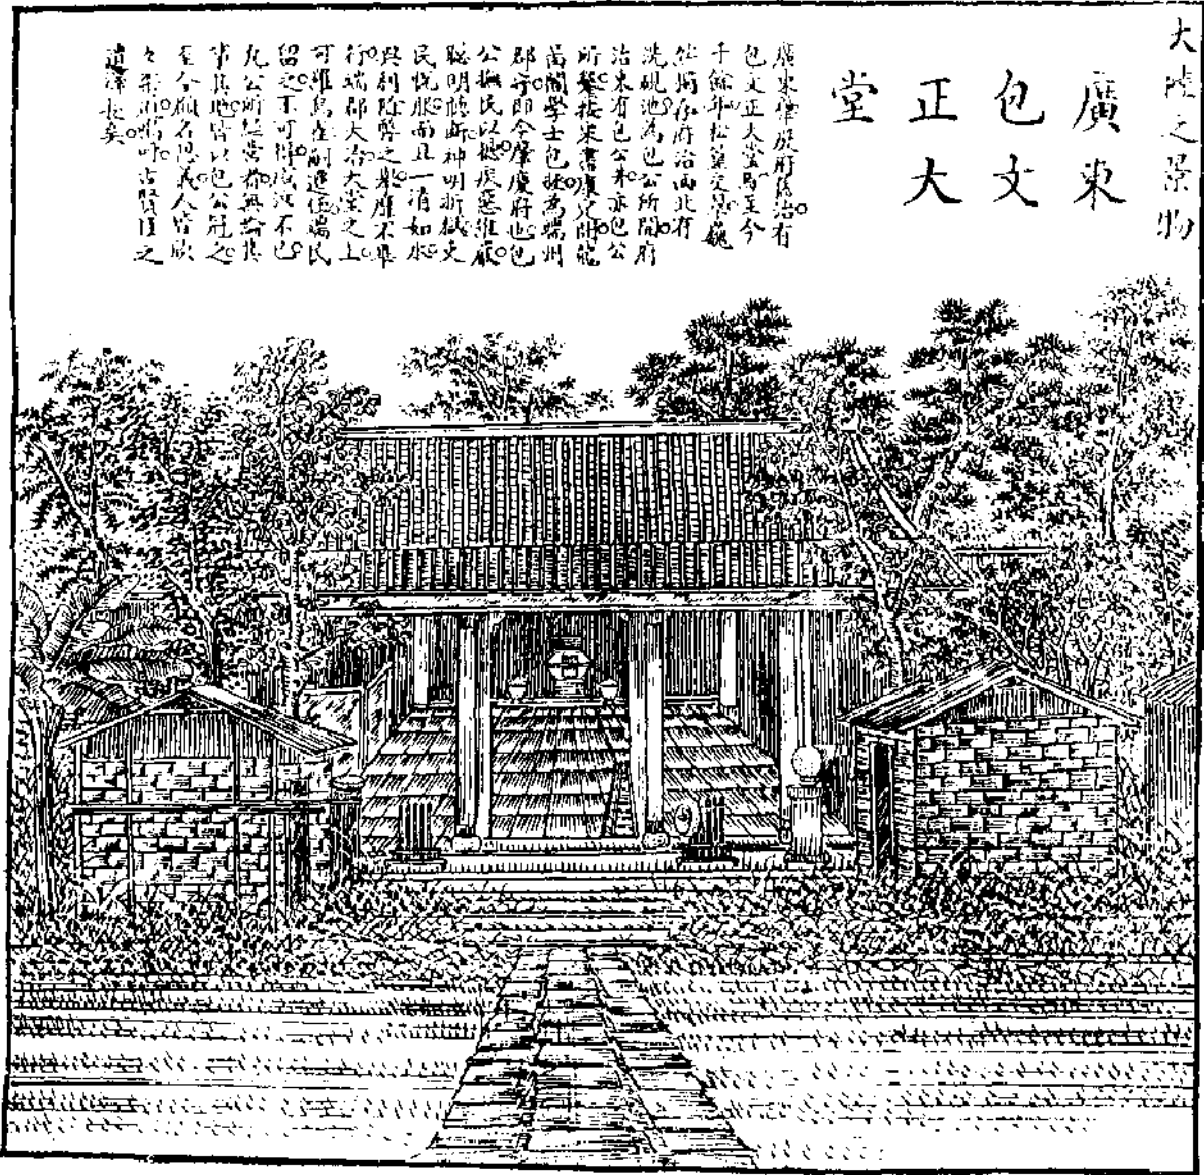 大陸之景物
廣東
包文
正大
堂
廣東肇慶府舊治有
包文正大堂焉至今
千餘年松篁交翠巍
然獨存府治西北有
洗硯池為包公所開府
治東有包公井亦包公
所鑿按宋書康定間龍
啚閣學士包拯為端州
郡守即今肇慶府也包
公撫民以慈疾惡維嚴
聰明聽斷神明折獄吏
民悅服而且一清如水
興利除弊之舉靡不準
行端郡大治大堂之上
可羅鳥雀嗣遷任端民
留之不可得咸泣不已
凡公所經營者無論其
事其地皆以包公冠之
至今顧名思義人皆欣
々樂道嗚呼古賢臣之
遺澤長矣